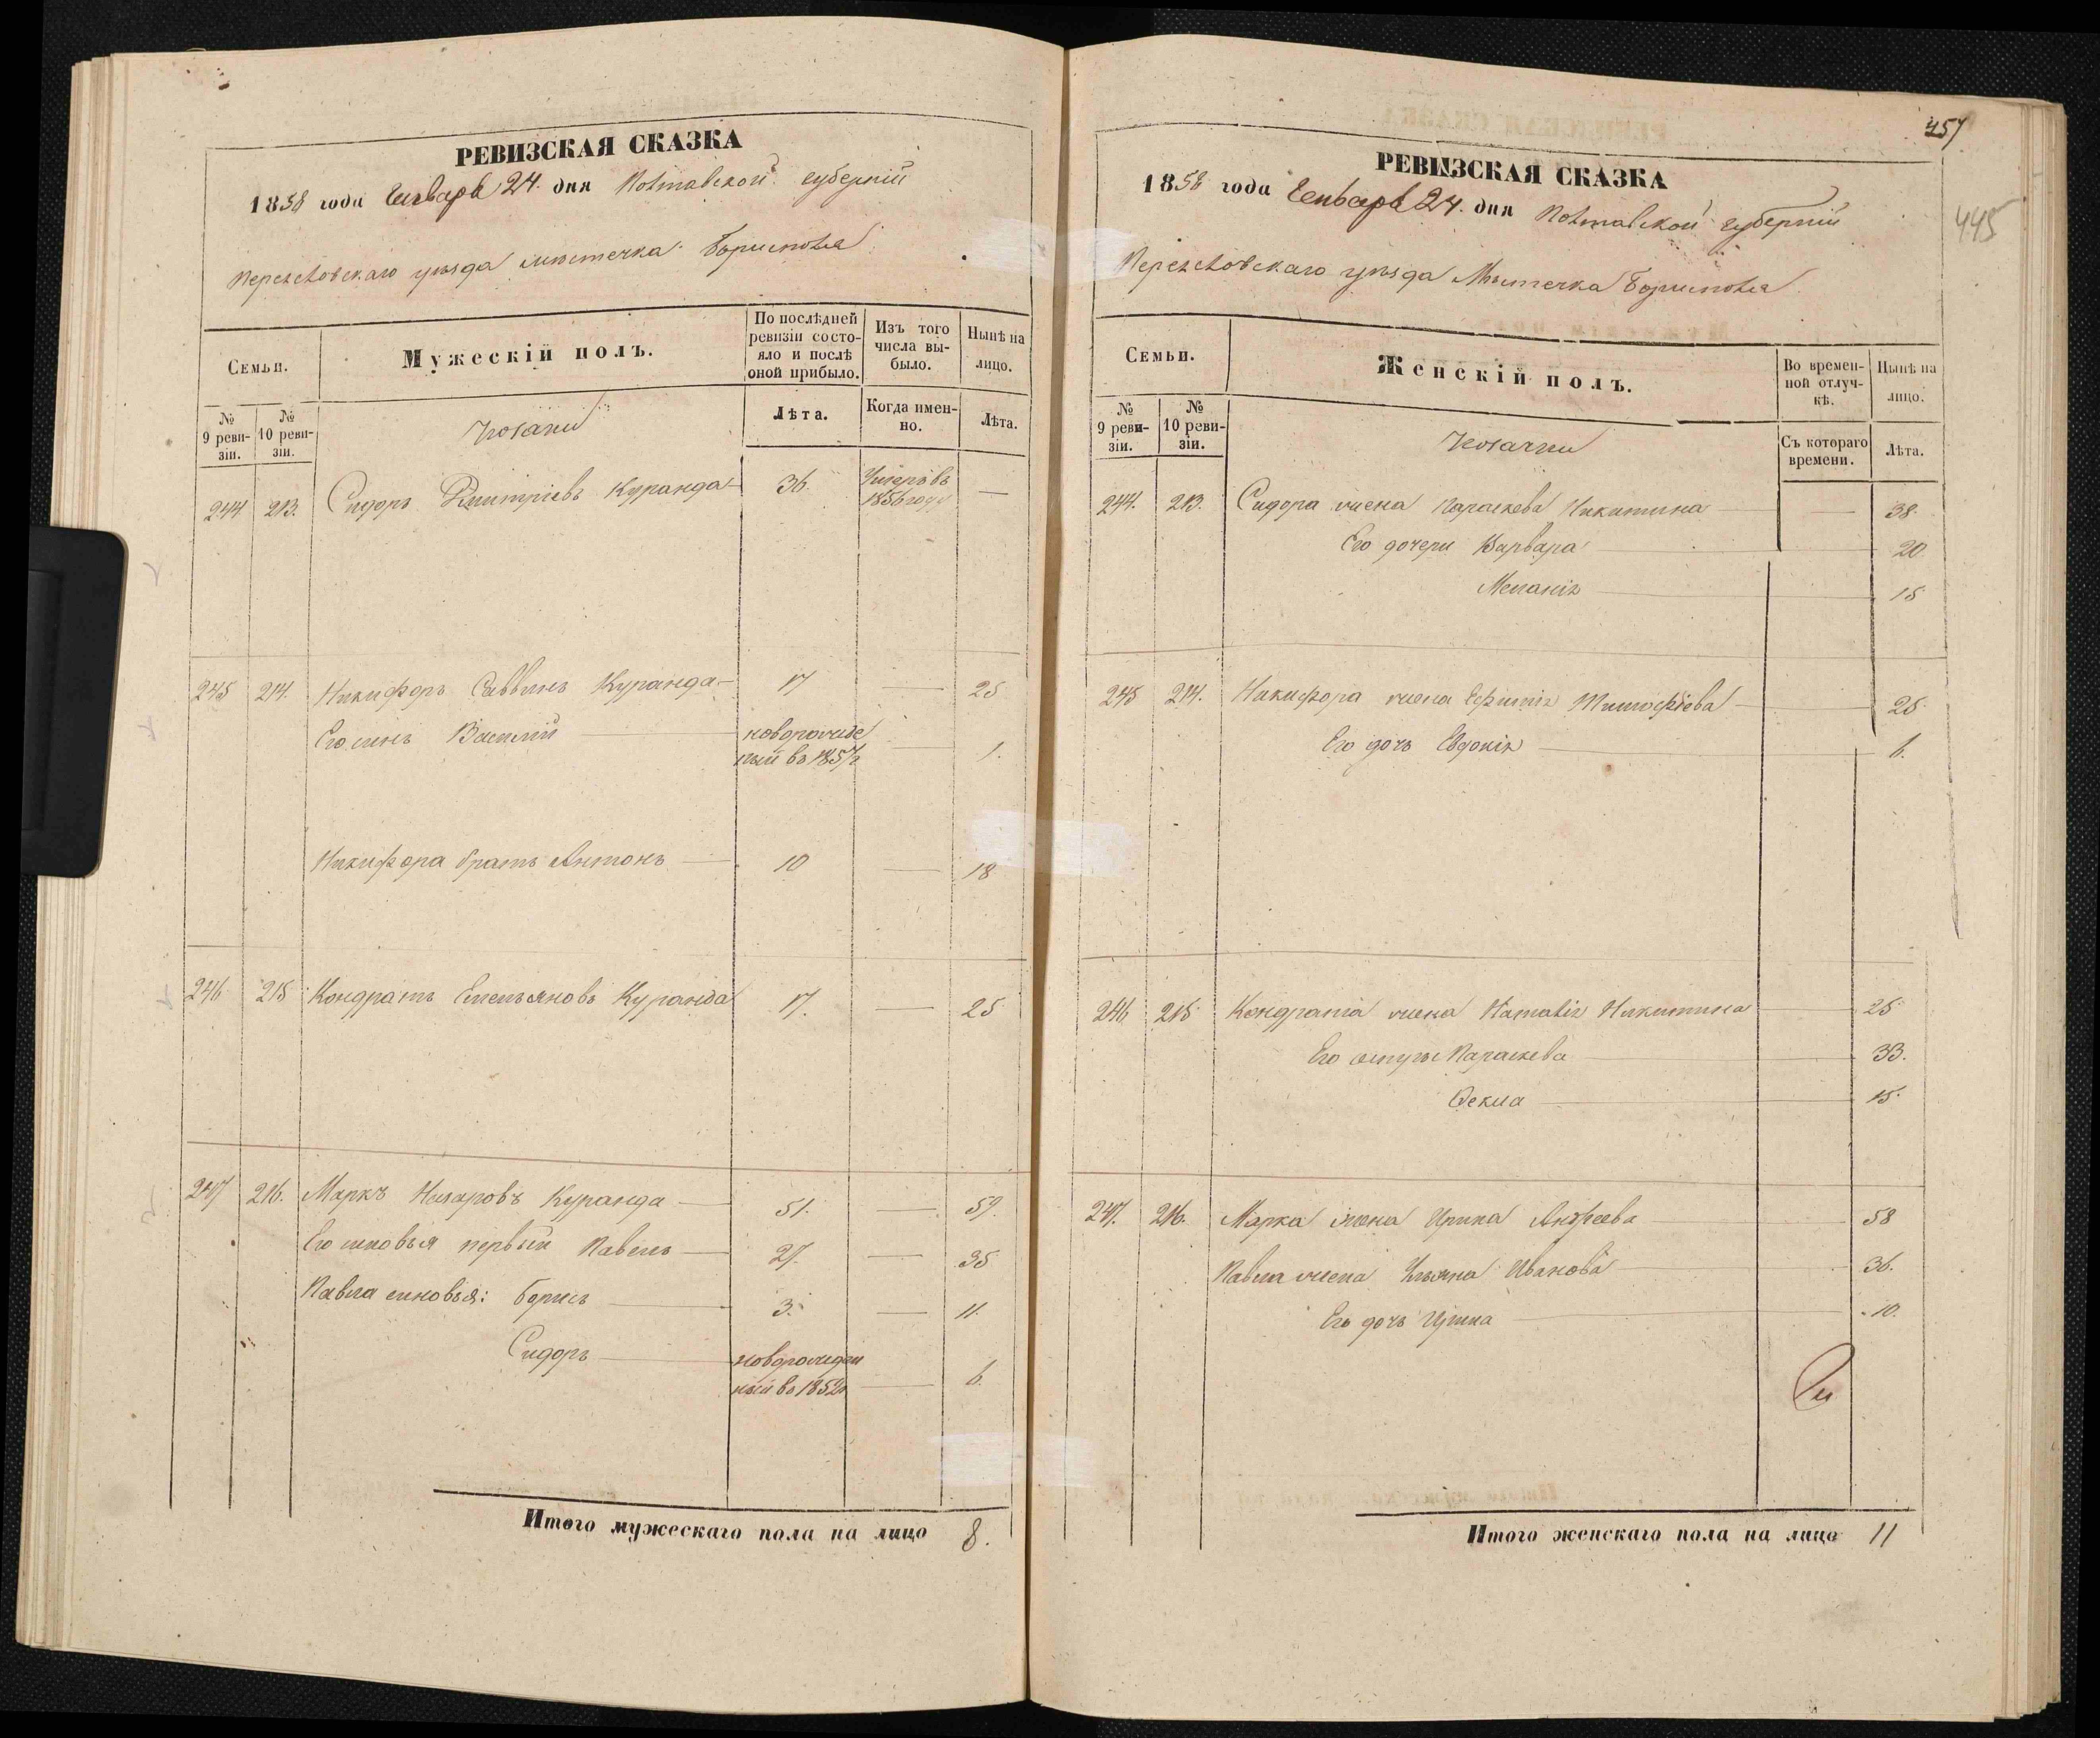 РЕВИЗСКАЯ СКАЗКА
1858 года Генваря 24. дня Полтавской губерніи
Переяславскаго уѣзда мѣстечка Борисполя
Семьи.
Мужескій полъ.
По послѣдней ревизіи состояло и послѣ оной прибыло.
Изъ того числа выбыло.
Нынѣ на лицо.
№ 9 ревизіи.
№ 10 ревизіи.
Козаки
Лѣта.
Когда именно.
Лѣта.
244 213. Сидоръ Дмитріевъ Куранда 36. Умеръ въ 1856 году —
245 214. Никифоръ Саввинъ Куранда 17 — 25
Его сынъ Василій новорожде
ный въ 1857 г — 1.
Никифора братъ Антонъ 10 — 18
246 215 Кондратъ Емельяновъ Куранда 17. — 25
247 216. Маркъ Назаровъ Куранда 51. — 59.
Его сыновья первый Павелъ 27. — 35
Павла сыновья: Борисъ 3. — 11.
Сидоръ новорожден
ный въ 1852 — 6.
Итого мужескаго пола на лицо 8.
457
445
РЕВИЗСКАЯ СКАЗКА
1858 года Генваря 24. дня Полтавской губерніи
Переяславскаго уѣзда Мѣстечка Борисполя
Семьи.
Женскій полъ.
Во временной отлучкѣ.
Нынѣ на лицо.
№ 9 ревизіи.
№ 10 ревизіи.
Козачки
Съ котораго времени.
Лѣта.
244. 213. Сидора жена Параскева Никитина — 38.
Его дочери Варвара 20.
Меланія 15
245 214. Никифора жена Ефимія Тимофѣева 25.
Его дочь Евдокія 6.
246 215 Кондрата жена Наталія Никитина 25
Его сестры Параскева 33.
Ѳекла 15.
247. 216. Марка жена Ирина Андреева 58
Павла жена Ульяна Иванова 36.
Его дочь Ирина 10.
Итого женскаго пола на лицо 11